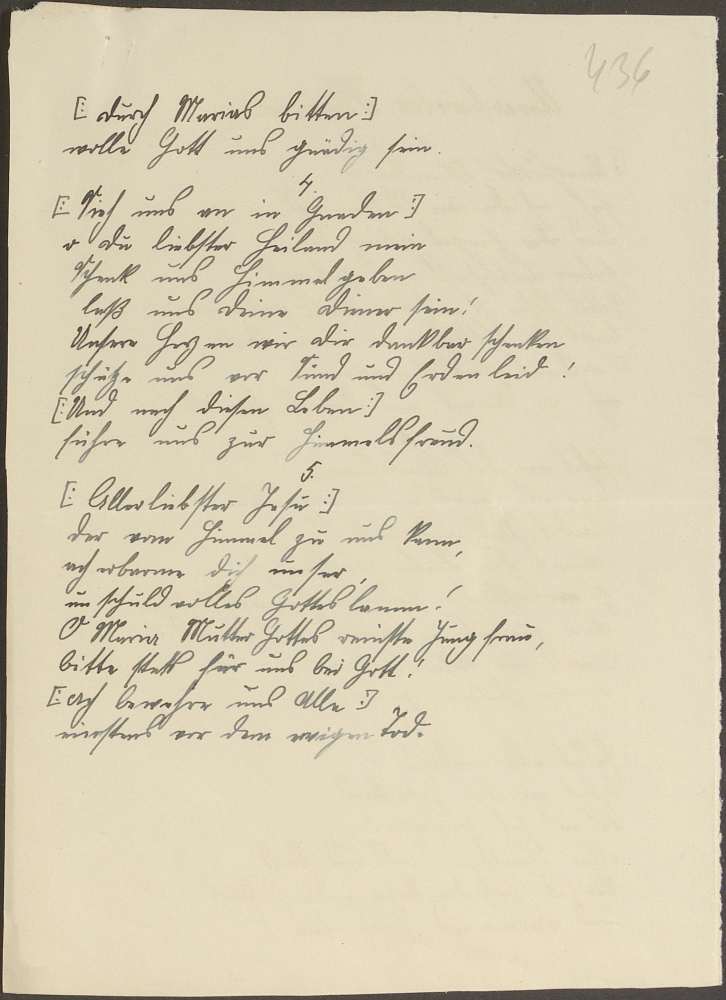 436
[: durch Marias bitten :]
wolle Gott uns gnädig sein.
4.
[: Sieh uns an in Gnaden :]
o du liebster Heiland mein
Schenk uns Himmelgeben
laß uns deine Diener sein!
Unsere Herzen wir dir dankbar schenken
schütze uns vor Sünd und Erdenleid!
[: Und nach diesen Leben :]
führe uns zur Himmelsfreud.
5.
[: Allerliebster Jesu :]
der vom Himmel zu uns kam,
ach erbarme dich unser,
unschuldvolles Gotteslamm!
O Maria Mutter Gottes reinste Jungfrau,
bitte stets für uns bei Gott!
[: Ach bewahre uns Alle :]
einstens vor dem ewigen Tod.